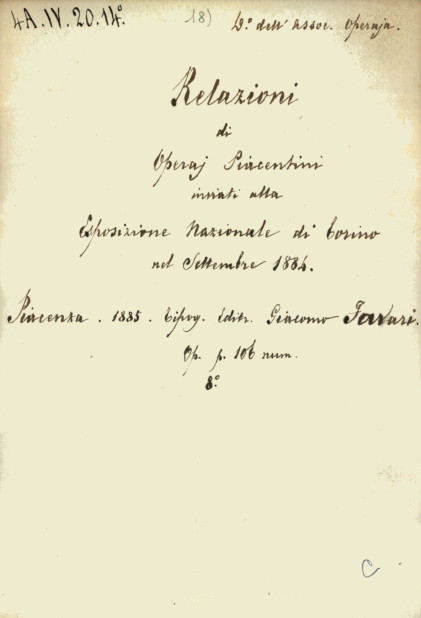 4A.IV.20.14º.
18)
D.º dell' Assoc. Operaja.
Relazioni
di
Operaj Piacentini
inviati alla
Esposizione Nazionale di Torino
nel Settembre 1884.
Piacenza. 1885. Tipog. Editr. Giacomo Favari.
Op. p. 106 num.
8.º
C